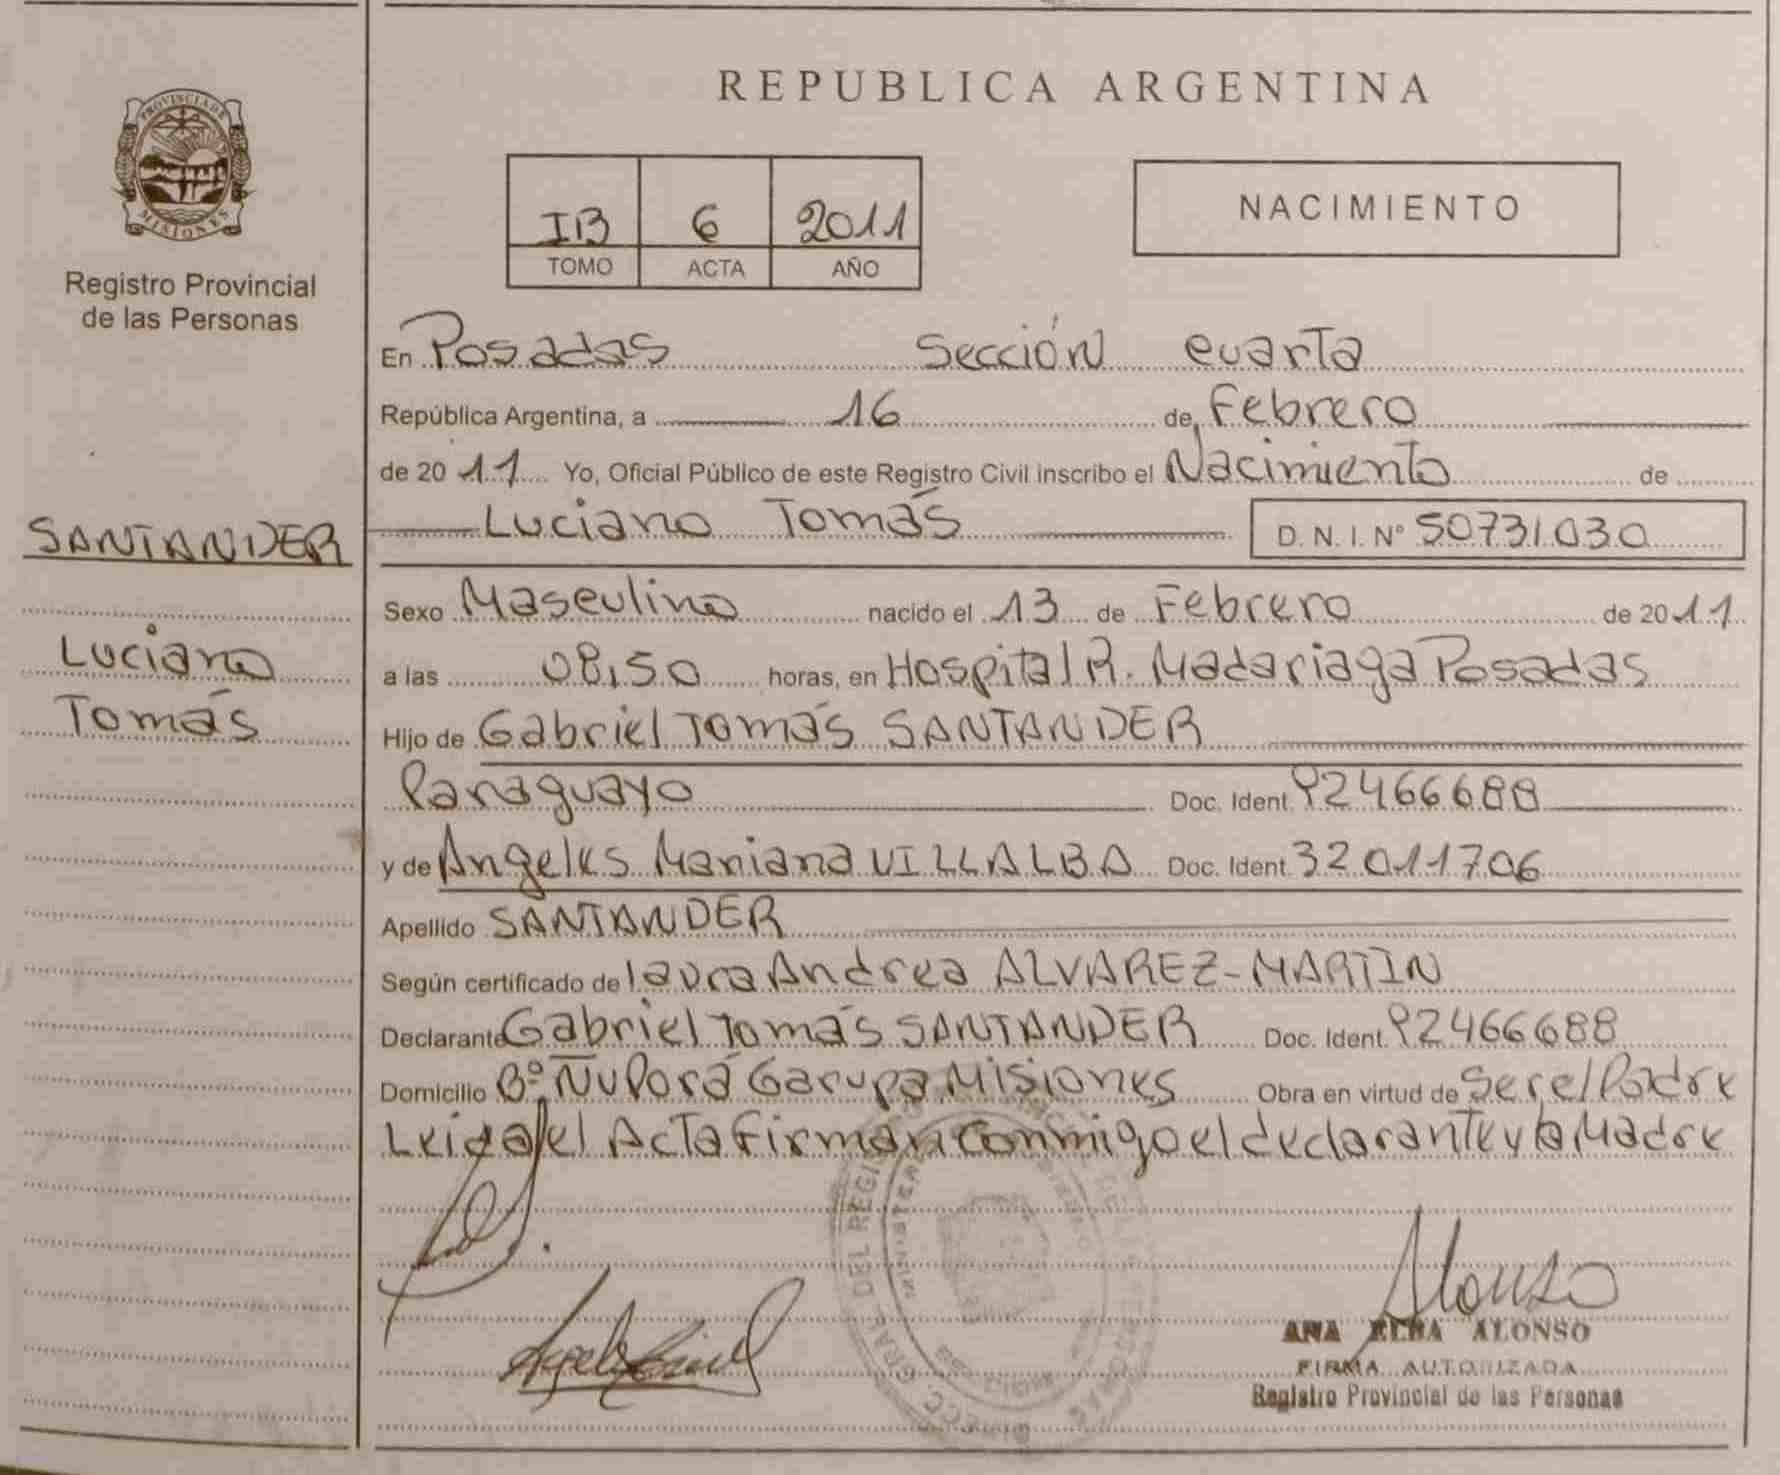 PROVINCIA DE
MISIONES
Registro Provincial
de las Personas
SANTANDER
Luciano
Tomás
REPUBLICA ARGENTINA
IB 6 2011
TOMO ACTA AÑO
NACIMIENTO
En Posadas Sección cuarta
República Argentina, a 16 de Febrero
de 2011 Yo, Oficial Público de este Registro Civil inscribo el Nacimiento de
Luciano Tomás D. N. I. Nº 50731030
Sexo Masculino nacido el 13 de Febrero de 2011
a las 08,50 horas, en Hospital R. Madariaga Posadas
Hijo de Gabriel Tomás SANTANDER
Paraguayo Doc. Ident. 92466688
y de Angeles Mariana VILLALBA Doc. Ident. 32011706
Apellido SANTANDER
Según certificado de Laura Andrea ALVAREZ-MARTIN
Declarante Gabriel Tomás SANTANDER Doc. Ident. 92466688
Domicilio Bº Ñu Porá Garupa Misiones Obra en virtud de Ser el Padre
Leida el Acta Firman conmigo el declarante y la Madre
Alonso
ANA ELBA ALONSO
FIRMA AUTORIZADA
Registro Provincial de las Personas